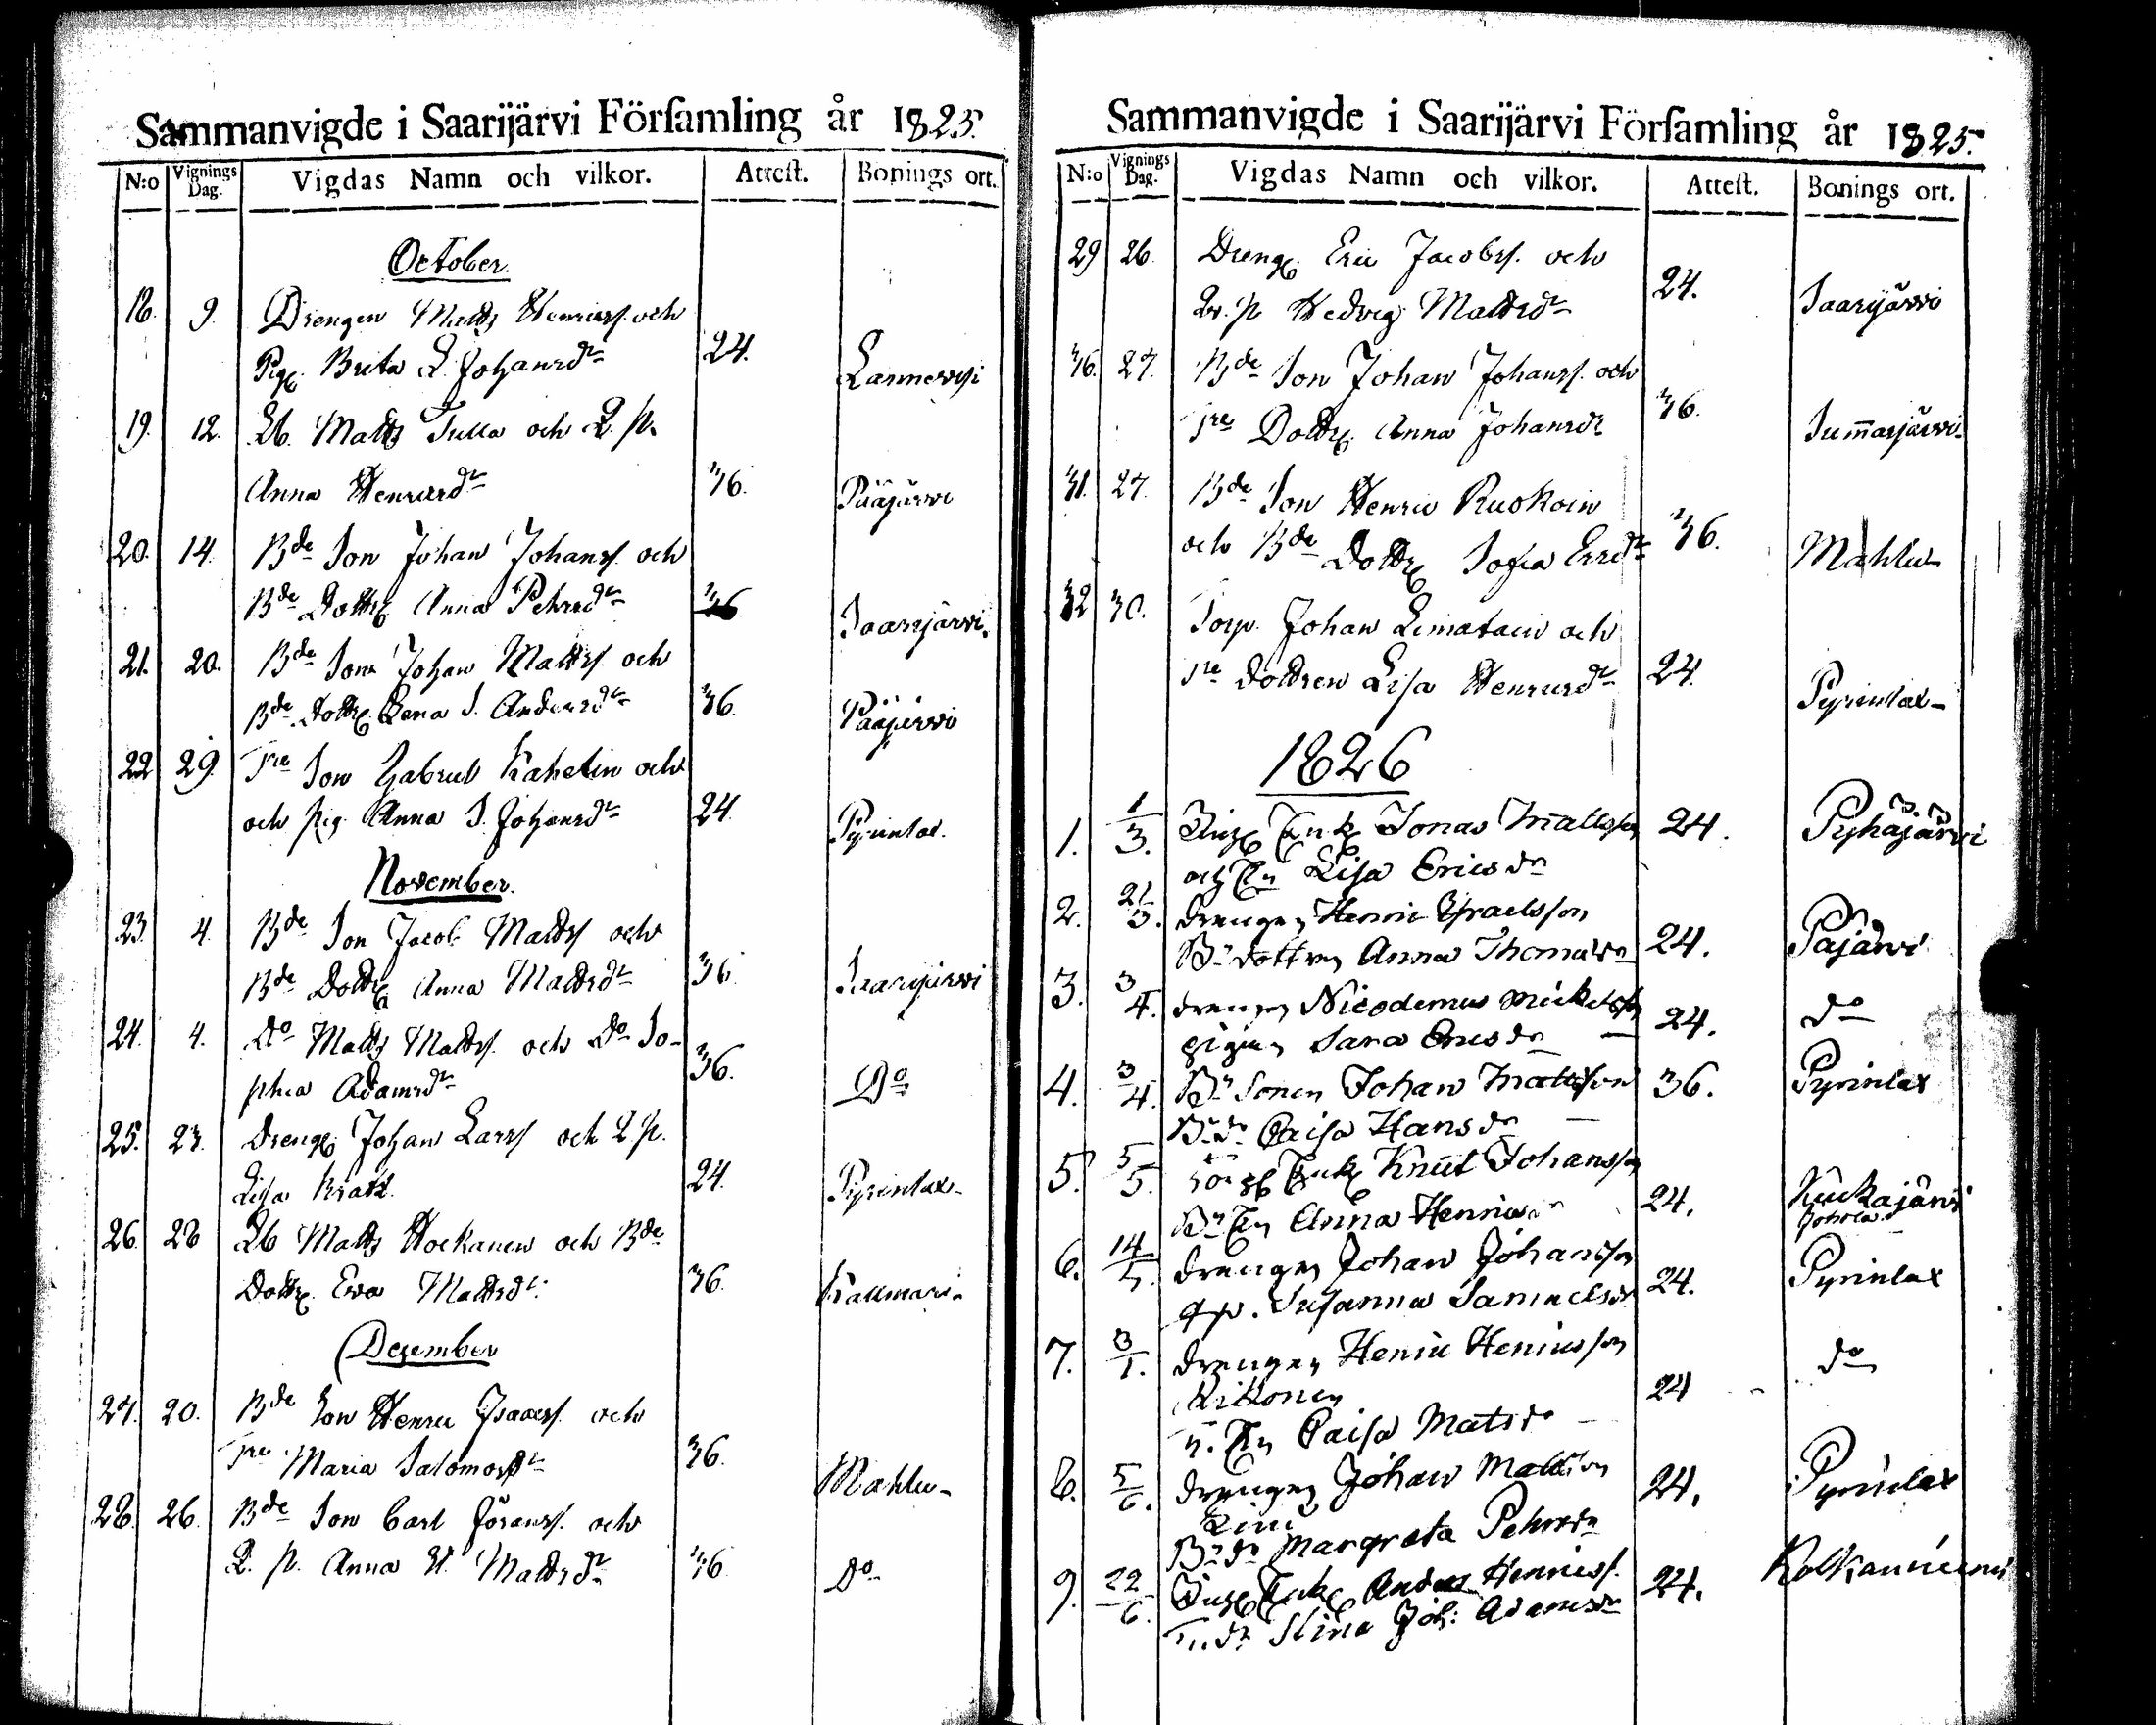 Sammanvigde i Saarijärvi Förſamling år 1825.
N:o Vignings Dag. Vigdas Namn och vilkor. Atteſt. Bonings ort.
October.
18. 9. Drengen Matts Henricss. och
Pig. Brita L. Johansdr 24. Lannevesi
19. 12. Eb. Matts Tulla och Q. p.
Anna Henricsdr 36. Pääjärvi
20. 14. Bde Son Johan Johanss. och
Bde Dottr. Anna Pehrsdr 36. Saarijärvi.
21. 20. Bde Son Johan Mattss. och
Bde Dottr. Lena S. Andersdr 36. Pääjärvi
22 29. Tre Son Gabriel Kahelin och
och pig. Anna S. Johansdr 24. Pyrintax.
November.
23. 4. Bde Son Jacob Mattss och
Bde Dottr. Anna Mattsdr 36. Saarijärvi
24. 4. Do Matts Mattss. och Do So-
phia Adamsdr 36. Do
25. 23. Dreng. Johan Larss och Q. p.
Lisa Kratz. 24. Pyrintax.
26. 28 Eb Matts Hockanen och Bde
Dottr. Eva Mattsdr. 36. Kallmari.
Dezember
27. 20. Bde Son Henric Isaacss. och
Tre Maria Salomonsdr 36. Mahlu.
28. 26. Bde Son Carl Jöranss. och
Q. p. Anna U. Mattsdr 36 Do
Sammanvigde i Saarijärvi Förſamling år 1825.
N:o Vignings Dag. Vigdas Namn och vilkor. Atteſt. Bonings ort.
29 26. Dreng. Eric Jacobss. och
Qv. p Hedvig Mattsdr 24. Saarijärvi
30. 27. Bde Son Johan Johanss. och
Tre Dottr. Anna Johansdr 36. Sum̄arjärvi.
31. 27. Bde Son Henric Ruokoin
och Bde Dottr. Sofia Ersdr 36. Mahlu
32 30. Torp. Johan Limatain och
Tre Dottren Lisa Henricsdr 24. Pyrintax
1826
1. 1/3. Enkl. Jonas Mattsson 24. Pyhäjärvi
och Lisa Ericsdr
2. 21/3. drengen Henric Israelsson
Br dottren Anna Thomasdr 24. Päjärvi
3. 3/4. drengen Nicodemus Mickelsson
pigan Sara Ericsdr 24. do
4. 3/4. Br Sonen Johan Mattsson 36. Pyrintax
Br dr Caisa Hansdr
5. 5/5. Enkl Knut Johansson
Anna Henricsdr 24. Kuckajärvi
6. 14/5. drengen Johan Johansson
q p. Susanna Samuelsdr 24. Pyrintax
7. 3/1. drengen Henric Henricsson do
Rikonen 24
Caisa Matsdr
8. 5/6. drengen Johan Mattsson 24. Pyrintax
Br dr Margreta Pehrsdr
9. 22/6. Enkl Anders Henricss. 24. Kolkanniemi
Stina Joh: Adamsdr